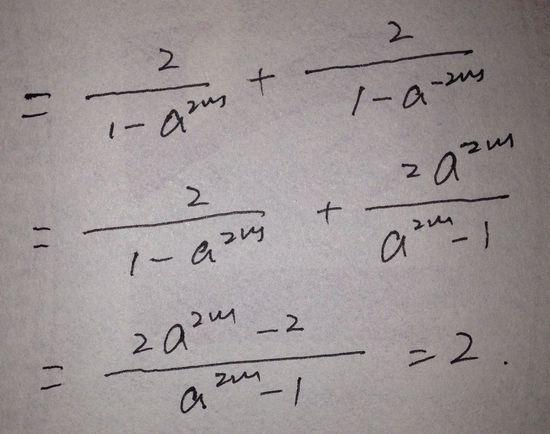 = 2/(1-a^{2m}) + 2/(1-a^{-2m})
= 2/(1-a^{2m}) + 2a^{2m}/(a^{2m}-1)
= (2a^{2m}-2)/(a^{2m}-1) = 2.